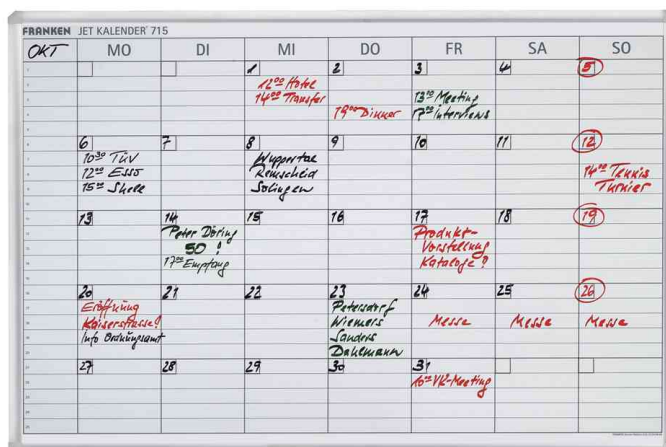 FRANKEN JET KALENDER 715
OKT MO DI MI DO FR SA SO
1 2 3 4 5
12⁰⁰ Hotel
14⁰⁰ Transfer
19⁰⁰ Dinner
13⁰⁰ Meeting
17⁰⁰ Interviews
6 7 8 9 10 11 12
10³⁰ TÜV
12⁰⁰ ESSO
15⁰⁰ Shell
Wuppertal
Remscheid
Solingen
14⁰⁰ Tennis
Turnier
13 14 15 16 17 18 19
Peter Döring
50 !
17⁰⁰ Empfang
Produkt-
Vorstellung
Kataloge ?
20 21 22 23 24 25 26
Eröffnung
Kaiserstrasse!
Info Ordnungsamt
Petersdorf
Wiemers
Sanders
Dahlmann
Messe Messe Messe
27 28 29 30 31
10⁰⁰ VK-Meeting